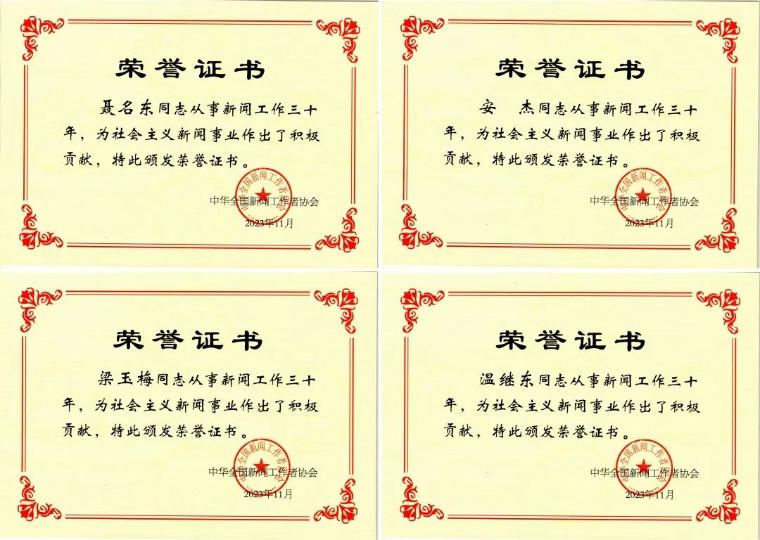 荣誉证书
聂名东同志从事新闻工作三十
年，为社会主义新闻事业作出了积极
贡献，特此颁发荣誉证书。
中华全国新闻工作者协会
2023年11月
荣誉证书
安 杰同志从事新闻工作三十
年，为社会主义新闻事业作出了积极
贡献，特此颁发荣誉证书。
中华全国新闻工作者协会
2023年11月
荣誉证书
梁玉梅同志从事新闻工作三十
年，为社会主义新闻事业作出了积极
贡献，特此颁发荣誉证书。
中华全国新闻工作者协会
2023年11月
荣誉证书
温继东同志从事新闻工作三十
年，为社会主义新闻事业作出了积极
贡献，特此颁发荣誉证书。
中华全国新闻工作者协会
2023年11月